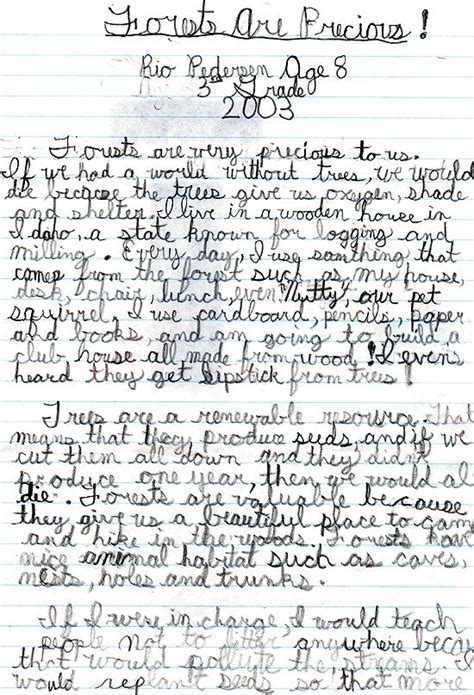 Forests Are Precious!
Rio Pedersen Age 8
3rd Grade
2003
Forests are very precious to us.
If we had a world without trees, we would
die because the trees give us oxygen, shade
and shelter. I live in a wooden house in
Idaho, a state known for logging and
milling. Every day, I use somthing that
comes from the forest such as, my house,
desk, chair, lunch, even "Nutty", our pet
squirrel. I use cardboard, pencils, paper
and books, and am going to build a
club house all made from wood! I evens
heard they get lipstick from trees!
Trees are a renewable resource. That
means that they produce seeds, and if we
cut them all down and they didn't
produce one year, then we would al
die. Forests are valuable because
they give us a beautiful place to cam
and hike in the woods. Forests have
nice animal habitat such as caves,
nests, holes and trunks.
If I were in charge, I would teach
people not to litter anywhere becau
that would pollute the streams. I
would replant seeds so that more